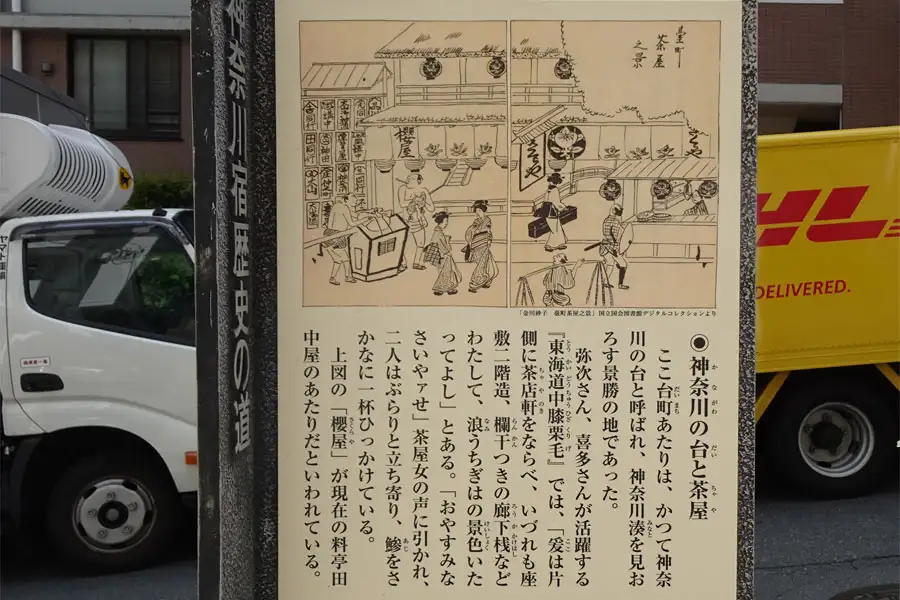 神奈川宿歴史の道
臺町
茶屋
之景
櫻屋
さくらや
「金川砂子 臺町茶屋之景」国立国会図書館デジタルコレクションより
●神奈川の台と茶屋
ここ台町あたりは、かつて神奈
川の台と呼ばれ、神奈川湊を見お
ろす景勝の地であった。
弥次さん、喜多さんが活躍する
『東海道中膝栗毛』では、「爰は片
側に茶店軒をならべ、いづれも座
敷二階造、欄干つきの廊下桟など
わたして、浪うちぎはの景色いた
ってよし」とある。「おやすみな
さいやァせ」茶屋女の声に引かれ、
二人はぶらりと立ち寄り、鯵をさ
かなに一杯ひっかけている。
上図の「櫻屋」が現在の料亭田
中屋のあたりだといわれている。
DHL
DELIVERED.